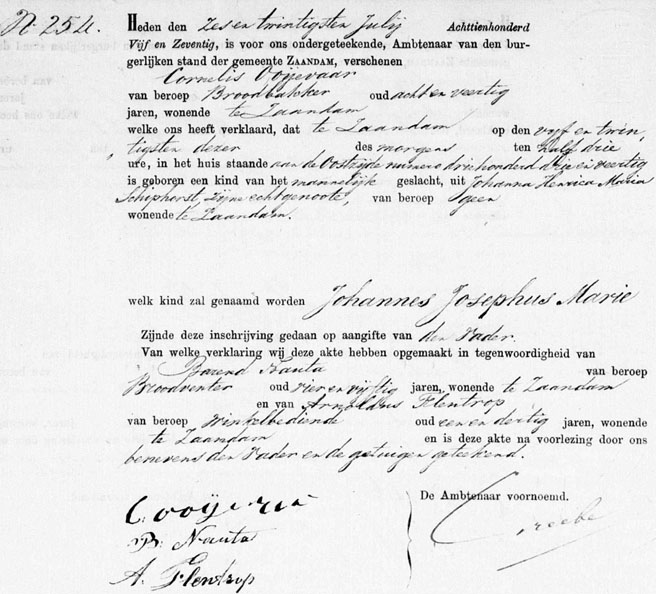 N. 254.
Heden den Zes en twintigsten Julij Achttienhonderd
Vijf en Zeventig, is voor ons ondergeteekende, Ambtenaar van den bur-
gerlijken stand der gemeente ZAANDAM, verschenen
Cornelis Ooijevaar
van beroep Broodbakker oud acht en veertig
jaren, wonende te Zaandam
welke ons heeft verklaard, dat te Zaandam op den vijf en twin
tigsten dezer des morgens ten half drie
ure, in het huis staande aan de Oostzijde numero driehonderd drie en veertig
is geboren een kind van het mannelijk geslacht, uit Johanna Henrica Maria
Schiphorst, zijne echtgenoote, van beroep geen
wonende te Zaandam.
welk kind zal genaamd worden Johannes Josephus Marie
Zijnde deze inschrijving gedaan op aangifte van den Vader.
Van welke verklaring wij deze akte hebben opgemaakt in tegenwoordigheid van
Barend Nauta van beroep
Broodventer oud vier en vijftig jaren, wonende te Zaandam
en van Arnoldus Flentrop
van beroep Winkelbediende oud een en dertig jaren, wonende
te Zaandam en is deze akte na voorlezing door ons
benevens den Vader en de getuigen geteekend.
De Ambtenaar voornoemd.
B. Nauta
A. Flentrop